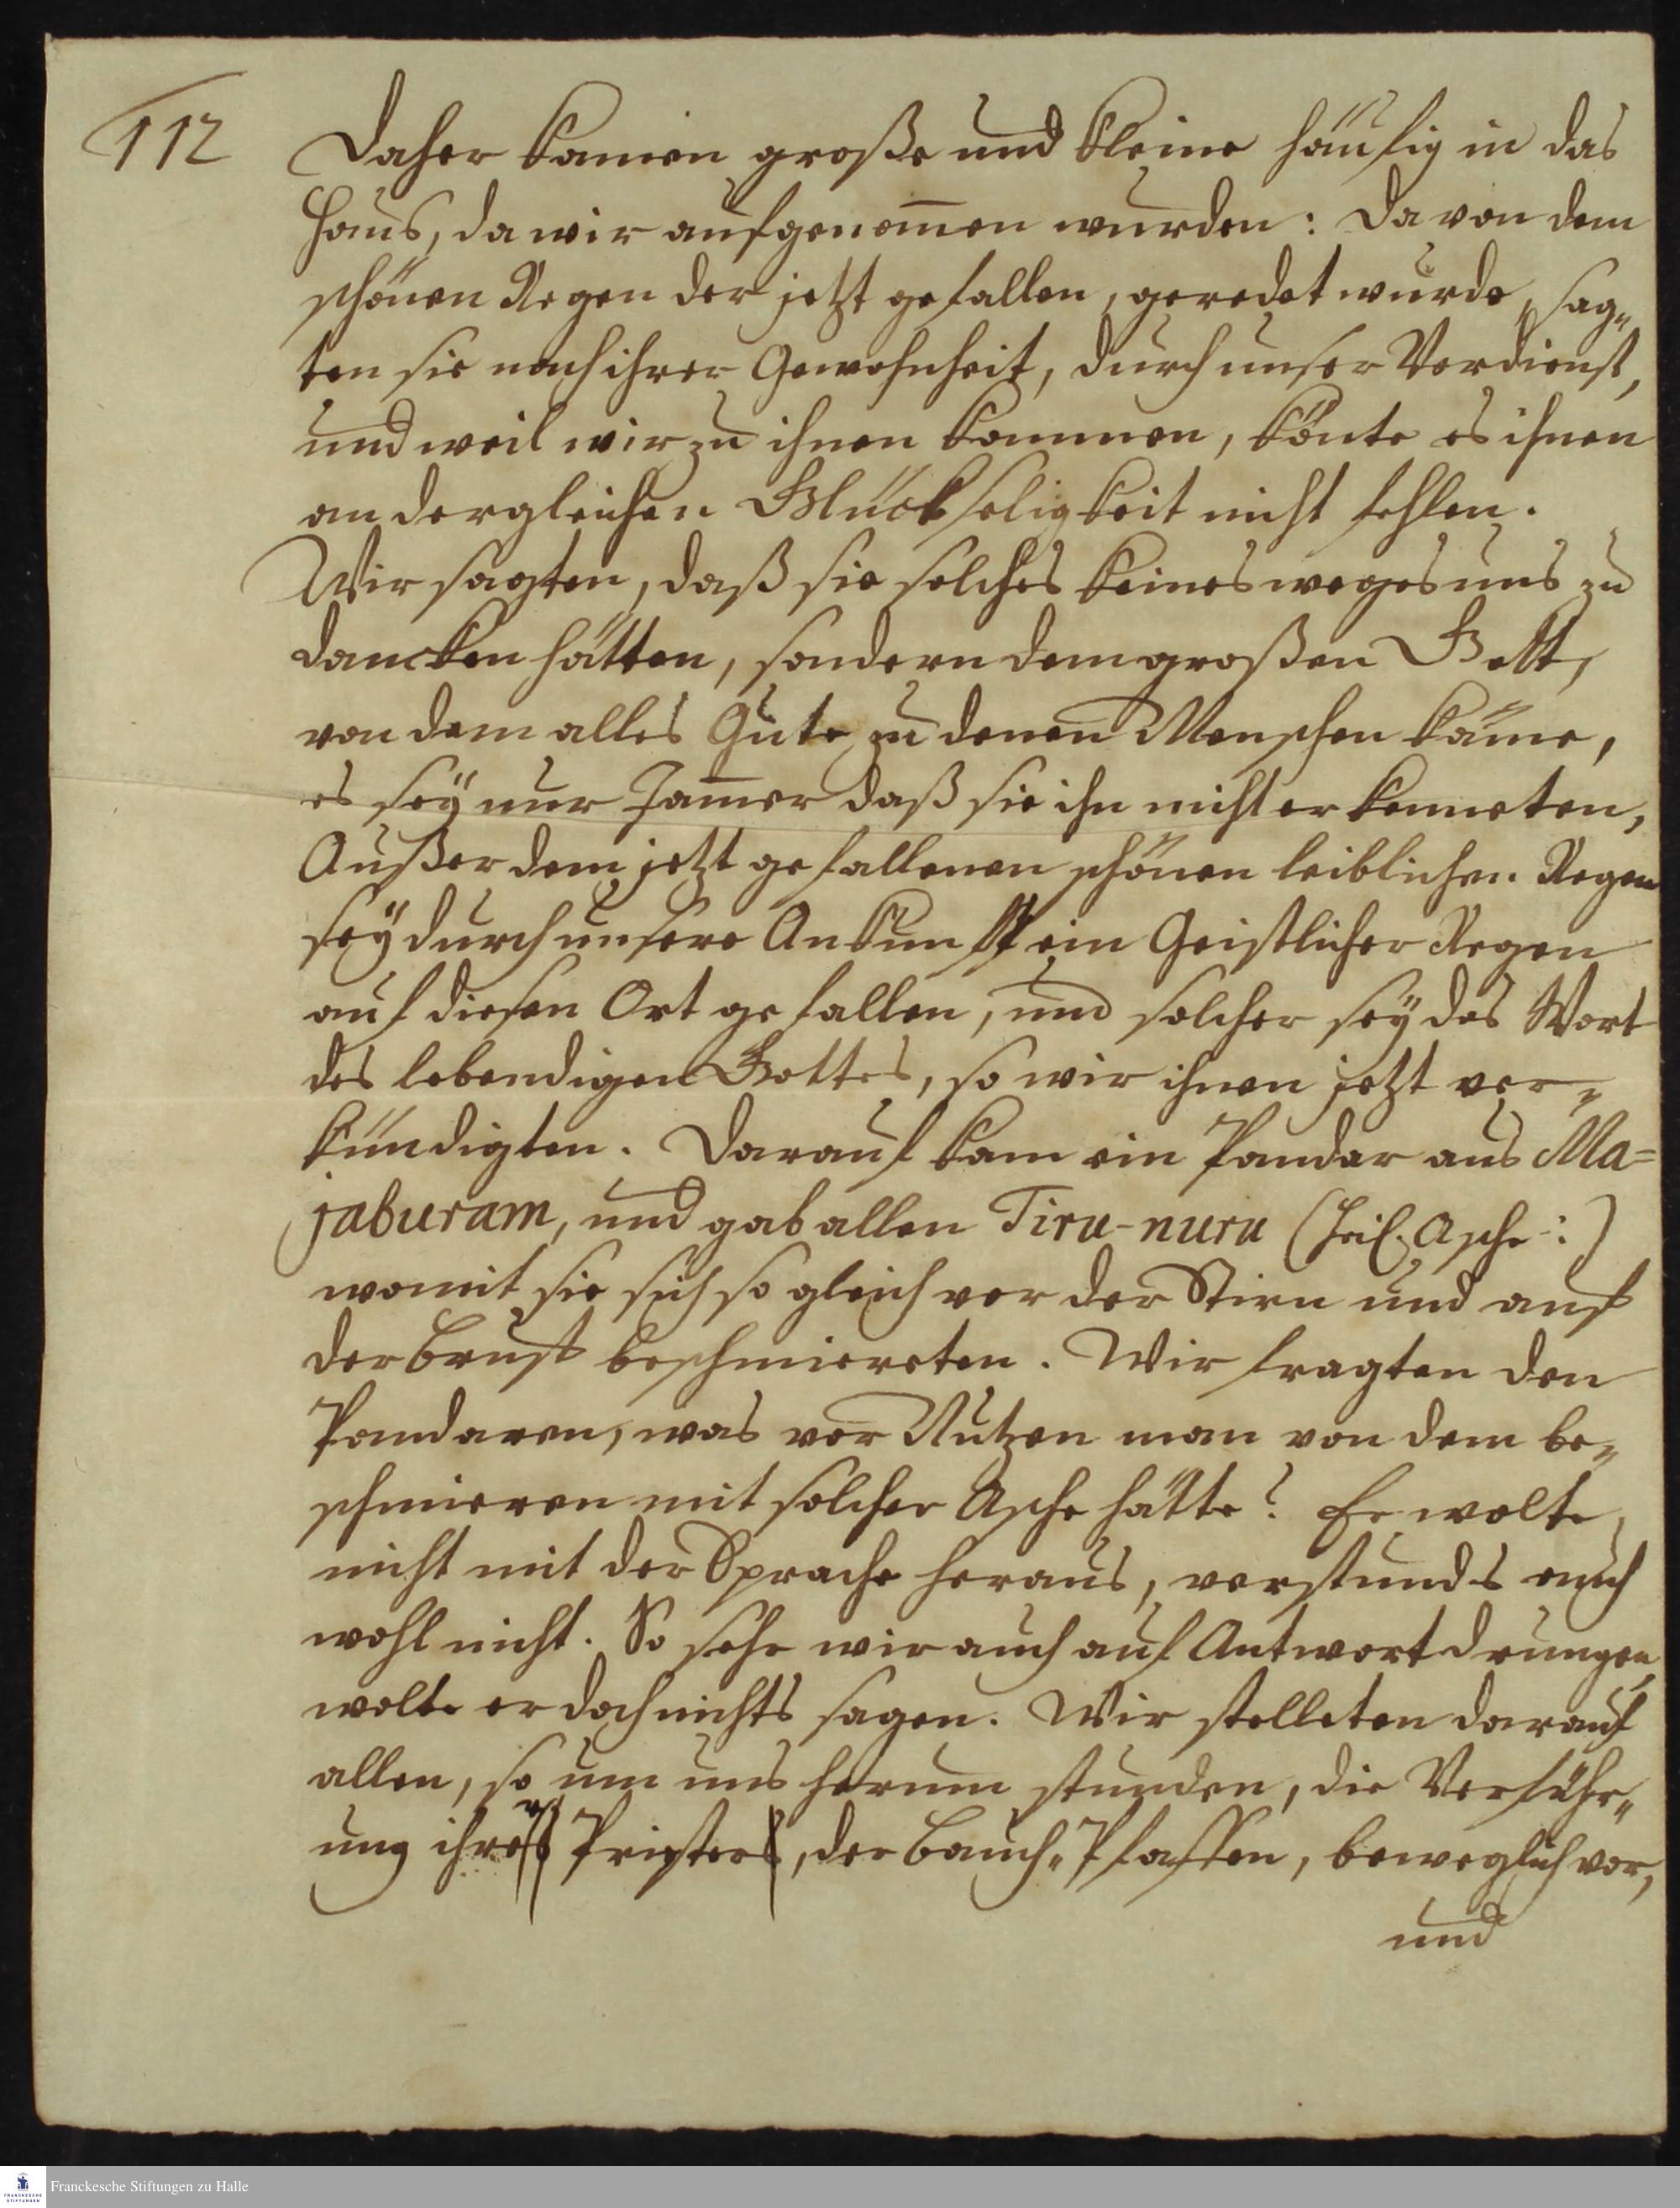 112
Daher kamen große und kleine häufig in das
Hauß, da wir aufgenom̄en wurden: Da von dem
schönen Regen der jetzt gefallen, geredet wurde, sag„
ten sie nach ihrer Gewohnheit, durch unser Verdienst,
und weil wir zu ihnen kommen, könte es ihnen
an dergleichen Glückseligkeit nicht fehlen.
Wir sagten, daß sie solches keinesweges uns zu
dancken hätten, sondern dem großen Gott,
von dem alles Gute zu denen Menschen käme,
es seÿ nur Jam̄er daß sie ihn nicht erkenneten,
Außer dem jetzt gefallenen schönen leiblichen Regen
seÿ durch unsere Ankunft ein Geistlicher Regen
auf diesen Ort gefallen, und solcher seÿ das Wort
des lebendigen Gottes, so wir ihnen jetzt ver„
kündigten. Darauf kam ein Pandar aus Ma=
jaburam, und gab allen Tiru-nuru (heil. Asche :)
womit sie sich so gleich vor der Stirn und auf
der Brust beschmiereten. Wir fragten den
Pandaren, was vor Nutzen man von dem be„
schmieren mit solcher Asche hätte? Er wolte
nicht mit der Sprache heraus, verstunds auch
wohl nicht. So sehr wir auch auf Antwort drungen,
wolte er doch nichts sagen. Wir stelleten darauf
allen, so um uns herum stunden, die Verführ„
ung ihrer Priester, der Bauch„Pfaffen, beweglich vor,
und
Franckesche Stiftungen zu Halle